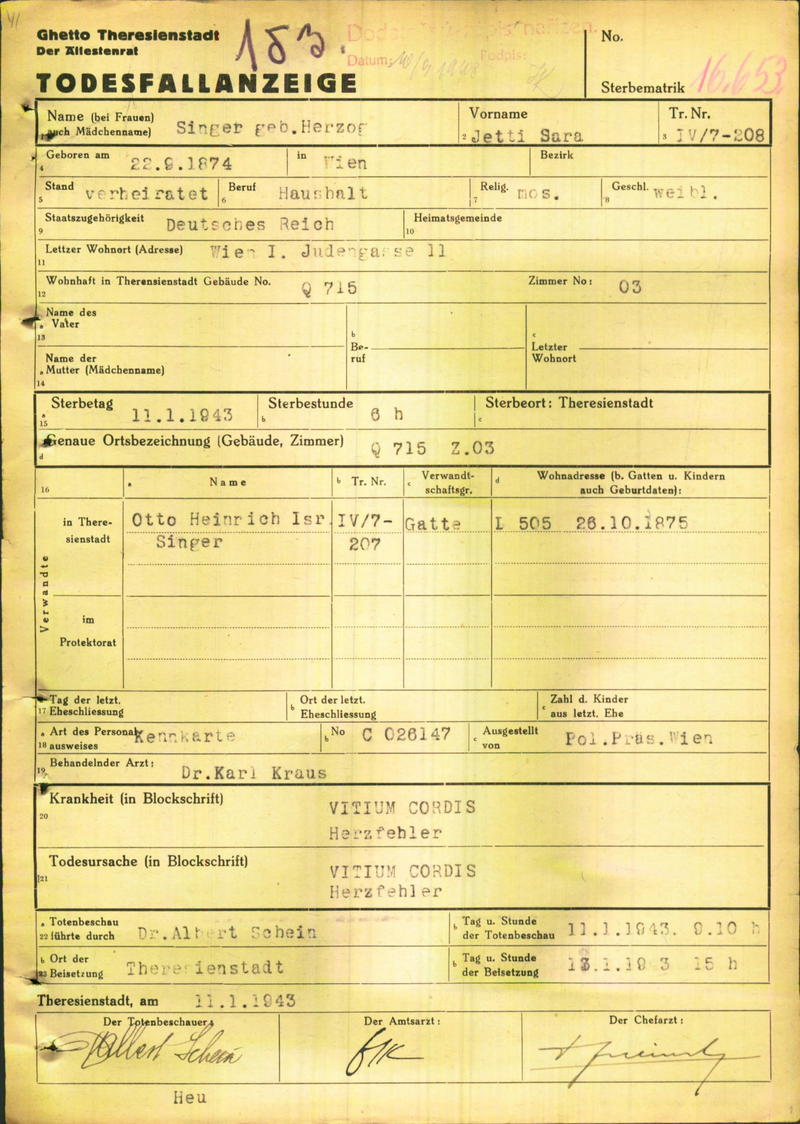 41
Ghetto Theresienstadt
Der Ältestenrat
183.
Datum: Podpis:
No.
TODESFALLANZEIGE
Sterbematrik 16.653
Name (bei Frauen)
auch Mädchenname) Singer geb.Herzog
Vorname
2 Jetti Sara
Tr. Nr.
3 IV/7-208
Geboren am
4 22.9.1874
in Wien
Bezirk
Stand
5 verheiratet
Beruf
6 Haushalt
Relig.
7 mos.
Geschl.
8 weibl.
Staatszugehörigkeit
9 Deutsches Reich
Heimatsgemeinde
10
Lettzer Wohnort (Adresse) Wien I. Judengasse 11
11
Wohnhaft in Theresienstadt Gebäude No. Q 715
12
Zimmer No: 03
Name des
a Vater
13
b
Be-
ruf
c
Letzter
Wohnort
Name der
Mutter (Mädchenname)
14
Sterbetag
a
15 11.1.1943
Sterbestunde
b 6 h
Sterbeort: Theresienstadt
c
Genaue Ortsbezeichnung (Gebäude, Zimmer) Q 715 Z.03
d
16
a Name
b Tr. Nr.
c Verwandt-
schaftsgr.
d Wohnadresse (b. Gatten u. Kindern
auch Geburtdaten):
Verwandte
in There-
sienstadt
Otto Heinrich Isr. IV/7- Gatte L 505 26.10.1875
Singer 207
im
Protektorat
a Tag der letzt.
17 Eheschliessung
b Ort der letzt.
Eheschliessung
c Zahl d. Kinder
aus letzt. Ehe
a Art des Personal-
18 ausweises Kennkarte
b No C 026147
c Ausgestellt
von Pol.Präs.Wien
Behandelnder Arzt:
19 Dr.Karl Kraus
Krankheit (in Blockschrift)
20
VITIUM CORDIS
Herzfehler
Todesursache (in Blockschrift)
21
VITIUM CORDIS
Herzfehler
a Totenbeschau
22 führte durch Dr.Albert Schein
b Tag u. Stunde
der Totenbeschau 11.1.1943. 9.10 h
b Ort der
23 Beisetzung Theresienstadt
b Tag u. Stunde
der Beisetzung 13.1.19 3 15 h
Theresienstadt, am 11.1.1943
Der Totenbeschauer:
Der Amtsarzt:
Der Chefarzt:
Albert Schein
Heu